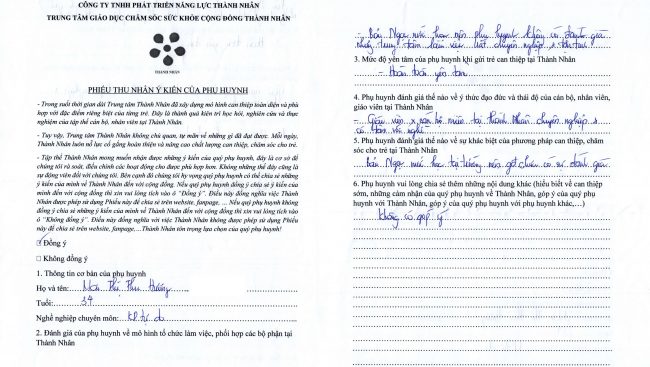 CÔNG TY TNHH PHÁT TRIỂN NĂNG LỰC THÀNH NHÂN
TRUNG TÂM GIÁO DỤC CHĂM SÓC SỨC KHỎE CỘNG ĐỒNG THÀNH NHÂN
THÀNH NHÂN
PHIẾU THU NHẬN Ý KIẾN CỦA PHỤ HUYNH
- Trong suốt thời gian dài Trung tâm Thành Nhân đã xây dựng mô hình can thiệp toàn diện và phù
hợp với đặc điểm riêng biệt của từng trẻ. Đây là thành quả kiên trì học hỏi, nghiên cứu và thực
nghiệm của tập thể cán bộ, nhân viên tại Thành Nhân.
- Tuy vậy, Trung tâm Thành Nhân không chủ quan, tự mãn về những gì đã đạt được. Mỗi ngày,
Thành Nhân luôn nỗ lực cố gắng hoàn thiện và nâng cao chất lượng can thiệp, chăm sóc cho trẻ.
- Tập thể Thành Nhân mong muốn nhận được những ý kiến của quý phụ huynh, đây là cơ sở để
chúng tôi rà soát, điều chỉnh các hoạt động cho được phù hợp hơn. Không những thế đây cũng là
sự động viên đối với chúng tôi. Bên cạnh đó chúng tôi hy vọng quý phụ huynh có thể chia sẻ những
ý kiến của mình về Thành Nhân đối với cộng đồng. Nếu quý phụ huynh đồng ý chia sẻ ý kiến của
mình đến với cộng đồng thì xin vui lòng tích vào ô "Đồng ý". Điều này đồng nghĩa việc Thành
Nhân được phép sử dụng Phiếu này để chia sẻ trên website, fanpage, ... Nếu quý phụ huynh không
đồng ý chia sẻ những ý kiến của mình về Thành Nhân đến với cộng đồng thì xin vui lòng tích vào
ô "Không đồng ý". Điều này đồng nghĩa với việc Thành Nhân không được phép sử dụng Phiếu
này để chia sẻ trên website, fanpage,...Thành Nhân tôn trọng lựa chọn của quý phụ huynh!
Đồng ý
Không đồng ý
1. Thông tin cơ bản của phụ huynh
Họ và tên: Thị Thu
Tuổi: 34
Nghề nghiệp chuyên môn: tự do
2. Đánh giá của phụ huynh về mô hình tổ chức làm việc, phối hợp các bộ phận tại
Thành Nhân
- phụ huynh không có đánh giá
trung tâm làm việc rất chuyên nghiệp
3. Mức độ yên tâm của phụ huynh khi gửi trẻ can thiệp tại Thành Nhân
- Hoàn toàn yên tâm
4. Phụ huynh đánh giá thế nào về ý thức đạo đức và thái độ của cán bộ, nhân viên,
giáo viên tại Thành Nhân
- Giáo viên tại Thành Nhân chuyên nghiệp
có tâm với nghề
5. Phụ huynh đánh giá thế nào về sự khác biệt của phương pháp can thiệp, chăm
sóc cho trẻ tại Thành Nhân
học tại trường nên chưa có sự đánh giá
6. Phụ huynh vui lòng chia sẻ thêm những nội dung khác (hiểu biết về can thiệp
sớm, những cảm nhận của quý phụ huynh về Thành Nhân, góp ý của quý phụ
huynh với Thành Nhân, góp ý của quý phụ huynh với phụ huynh khác,...)
Không có góp ý